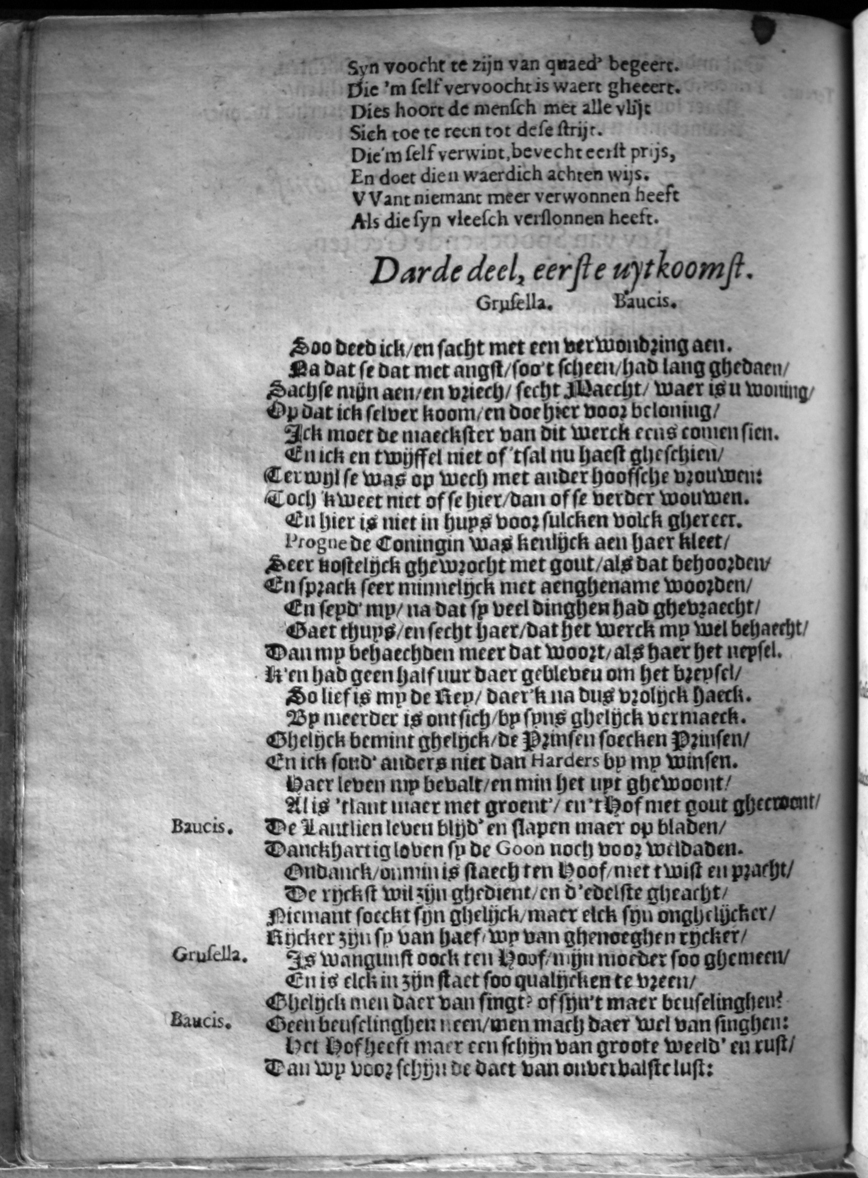 Syn voocht te zijn van quaed' begeert.
Die 'm self vervoocht is waert gheeert.
Dies hoort de mensch met alle vlijt
Sich toe te reen tot dese strijt.
Die'm self verwint, bevecht eerst prijs,
En doet dien waerdich achten wijs.
VVant niemant meer verwonnen heeft
Als die syn vleesch verslonnen heeft.
Darde deel, eerste uytkoomst.
Grusella. Baucis.
Soo deed ick/en sacht met een verwondring aen.
Na dat se dat met angst/soo't scheen/had lang ghedaen/
Sachse mijn aen/en vriech/secht Maecht/ waer is u woning/
Op dat ick selver koom/en doe hier voor beloning/
Ick moet de maeckster van dit werck eens comen sien.
En ick en twijffel niet of 'tsal nu haest gheschien/
Terwijl se was op wech met ander hoofsche vrouwen:
Toch 'k weet niet of se hier/dan of se verder wouwen.
En hier is niet in huys voor sulcken volck ghereet.
Progne de Coningin was kenlijck aen haer kleet/
Seer kostelijck ghewrocht met gout/als dat behoorden/
En sprack seer minnelijck met aenghename woorden/
En seyd' my/ na dat sy veel dinghen had ghevraecht/
Gaet thuys/en secht haer/dat het werck my wel behaecht/
Dan my behaechden meer dat woort/als haer het neysel.
K'en had geen half uur daer gebleven om het breysel/
So lief is my de Rey/ daer'k na dus vrolijck haeck.
By meerder is ontsich/by syns ghelijck vermaeck.
Ghelijck bemint ghelijck/de Prinsen soecken Prinsen/
En ick sond' anders niet dan Harders by my winsen.
Haer leven my bevalt/en min het uyt ghewoont/
Al is 'tlant maer met groent'/ en 't Hof met gout ghecroont/
Baucis. De Lantlien leven blijd' en slapen maer op bladen/
Danckhartig loven sy de Goon noch voor weldaden.
Ondanck/onmin is staech ten Hoof/met twist en pracht/
De rijckst wil zijn ghedient/en d'edelste gheacht/
Niemant soeckt syn ghelijck/maer elck syn onghelijcker/
Rijcker zijn sy van haef/wy van ghenoeghen rijcker/
Grusella. Is wangunst oock ten Hoof/mijn moeder soo ghemeen/
En is elck in zijn staet soo qualijcken te vreen/
Ghelijck men daer van singt? of syn't maer beuselinghen?
Baucis. Geen beuselinghen neen/men mach daer wel van singhen:
Het Hof heeft maer een schijn van groote weeld' en rust/
Dan wy voor schijn de daet van onvervalste lust: